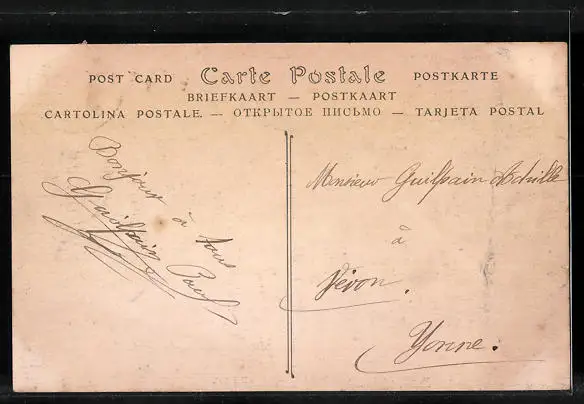 POST CARD Carte Postale POSTKARTE
BRIEFKAART — POSTKAART
CARTOLINA POSTALE. — ОТКРЫТОЕ ПИСЬМО — TARJETA POSTAL
Bonjour à tous
Guilpain Paul
Monsieur Guilpain Achille
à
Véron.
Yonne.